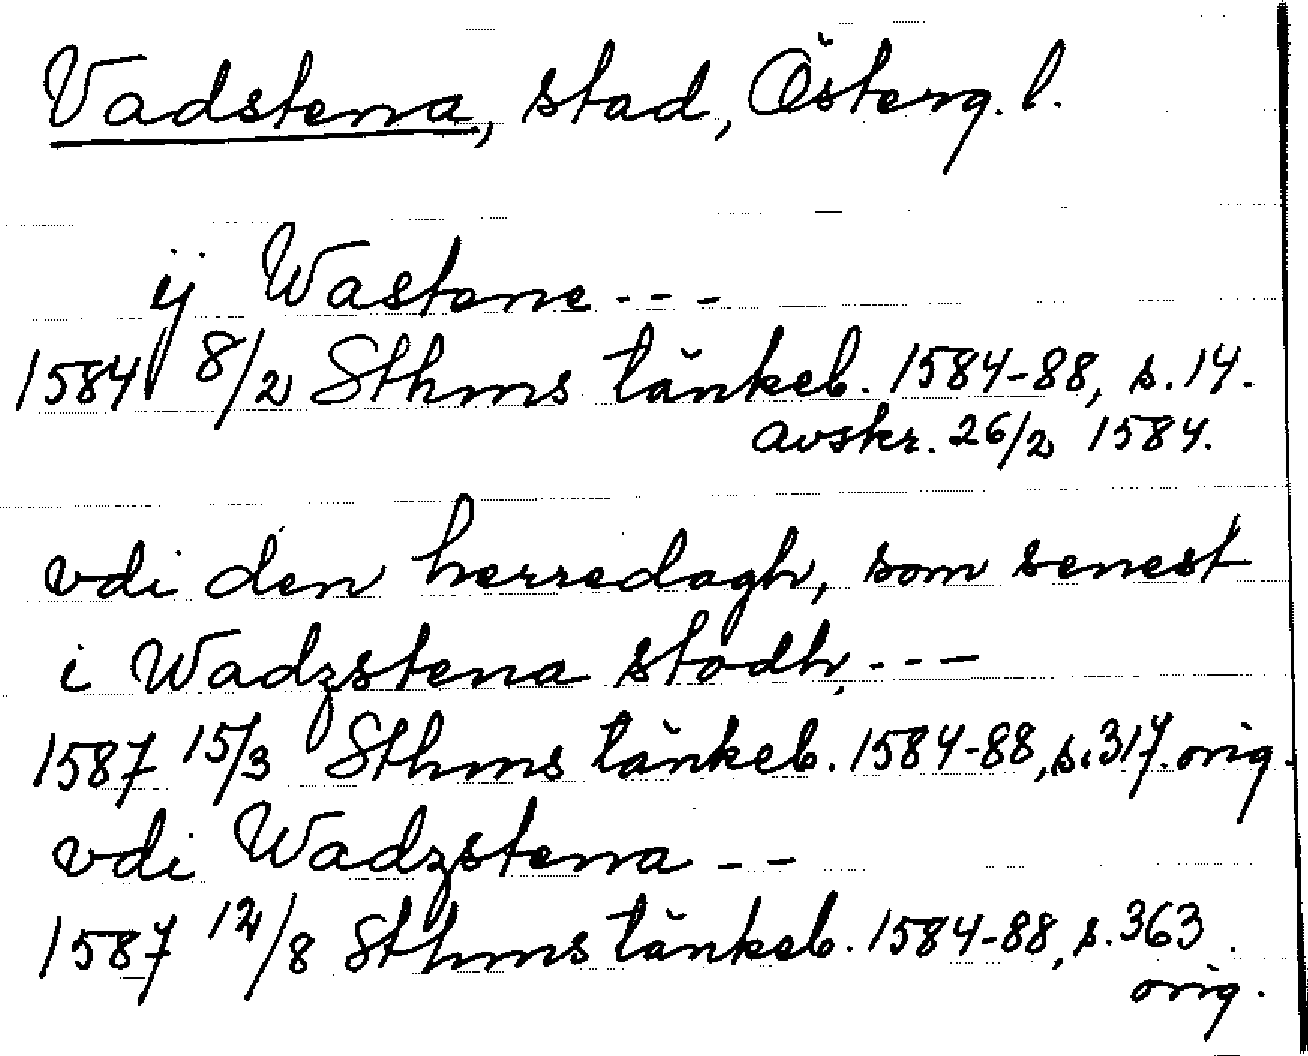 Vadstena, stad, Österg. l.
ij Wastene ---
1584 8/2 Sthms tänkeb. 1584-88, s. 14.
avskr. 26/2 1584.
vdi den herredagh, som senest
i Wadzstena stodh, ---
1587 15/3 Sthms tänkeb. 1584-88, s. 317. orig.
vdi Wadzstena --
1587 12/8 Sthms tänkeb. 1584-88, s. 363.
orig.